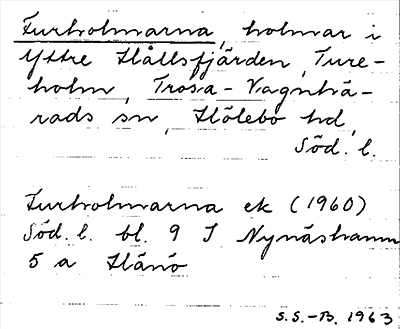 Furholmarna, holmar i
Yttre Hållsfjärden, Ture-
holm, Trosa-Vagnhä-
rads sn, Hölebo hd,
Söd. l.
Furholmarna ek (1960)
Söd. l. bl. 9 I Nynäshamn
5 a Hänö
S.S.-B. 1963